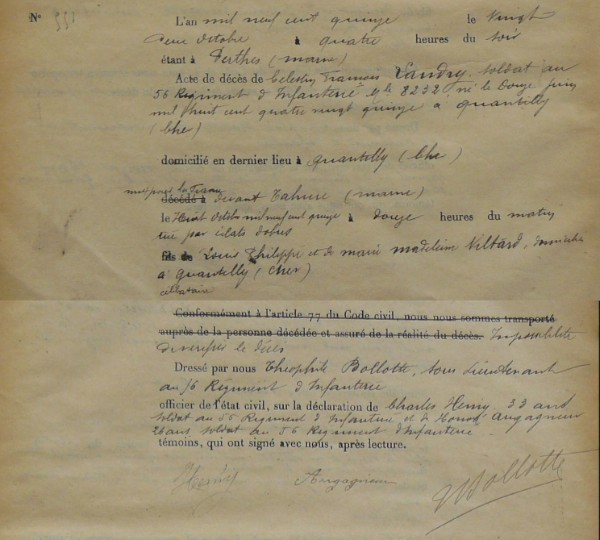 N° 551
L'an mil neuf cent quinze le vingt
deux octobre à quatre heures du soir
étant à Perthes (marne)
Acte de décès de Celestin Francois Landry. soldat au
56 Regiment d'Infanterie né le Douze juin
mil huit cent quatre vingt quinze a quantilly
(Cher)
domicilié en dernier lieu à quantilly (Cher)
mort pour la France
décédé à devant Tahure (marne)
le Huit octobre mil neuf cent quinze à douze heures du matin
tué par éclats d'obus
fils de Louis Philippe et de marie madeleine Villard, domicilié
à quantilly (Cher)
célibataire
Conformément à l'article 77 du Code civil, nous nous sommes transporté
auprès de la personne décédée et assuré de la réalité du décès. Impossibilité
de verifier le décès
Dressé par nous Théophile Bollotte, sous Lieutenant
au 56 Régiment d'Infanterie
officier de l'état civil, sur la déclaration de Charles Henry. 33 ans
soldat au 56 Regiment d'Infanterie et de Augagneur
26 ans soldat au 56 Regiment d'Infanterie
témoins, qui ont signé avec nous, après lecture.
Henry Augagneur Bollotte